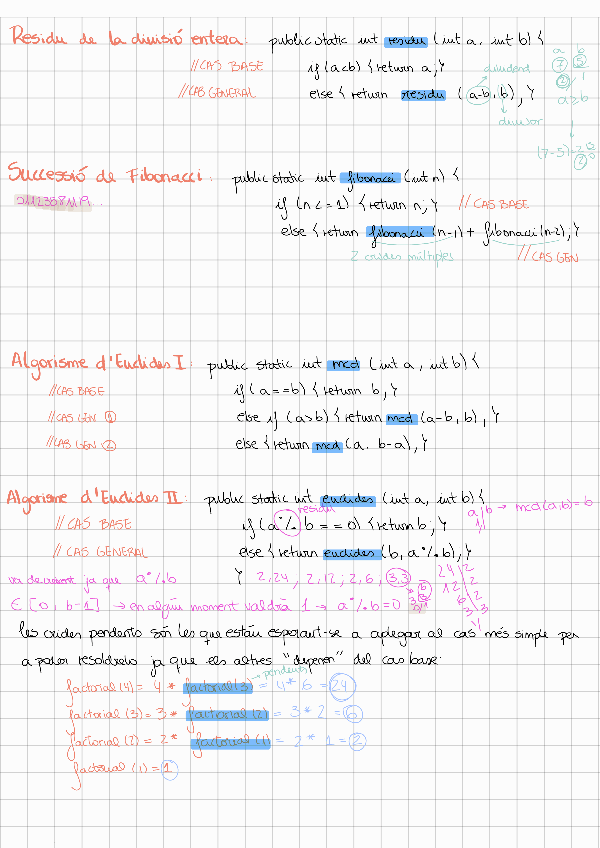 Residu de la divisió entera: public static int residu (int a, int b) {
//CAS BASE if (a<b) {return a;}
//CAS GENERAL else { return residu (a-b, b); }
dividend
divisor
a b
7 5
2 1
a≥b
(7-5)=2
Successió de Fibonacci: public static int fibonacci (int n) {
if (n<=1) {return n;} //CAS BASE
else {return fibonacci (n-1) + fibonacci (n-2);}
2 crides múltiples //CAS GEN
Algorisme d'Euclides I: public static int mcd (int a, int b) {
//CAS BASE if (a==b) {return b;}
//CAS GEN 1 else if (a>b) {return mcd (a-b, b);}
//CAS GEN 2 else {return mcd (a, b-a);}
Algorisme d'Euclides II: public static int euclides (int a, int b) {
residu
//CAS BASE if (a % b == 0) {return b;}
a|b → mcd(a,b)=b
//CAS GENERAL else {return euclides (b, a%b);}
va decreixent ja que a%b } 2,24, 2,12; 2,6, 3,3
24 2
12 2
6 2
3 3
1
∈ [0, b-1] → en algún moment valdrà 1 → a%b=0
les crides pendents són les que estàn esperant-se a aplegar al cas més simple per
a poder resoldre'lo ja que els altres "depenen" del cas base.
pendents
factorial (4) = 4 * factorial (3) = 4 * 6 = 24
factorial (3) = 3 * factorial (2) = 3 * 2 = 6
factorial (2) = 2 * factorial (1) = 2 * 1 = 2
factorial (1) = 1